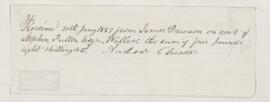 Received 20th Jany 1857 from James Dawson on acct of
Stephen Fulton Esqr. Wallace the sum of four pounds
eight shillings &
Andrew